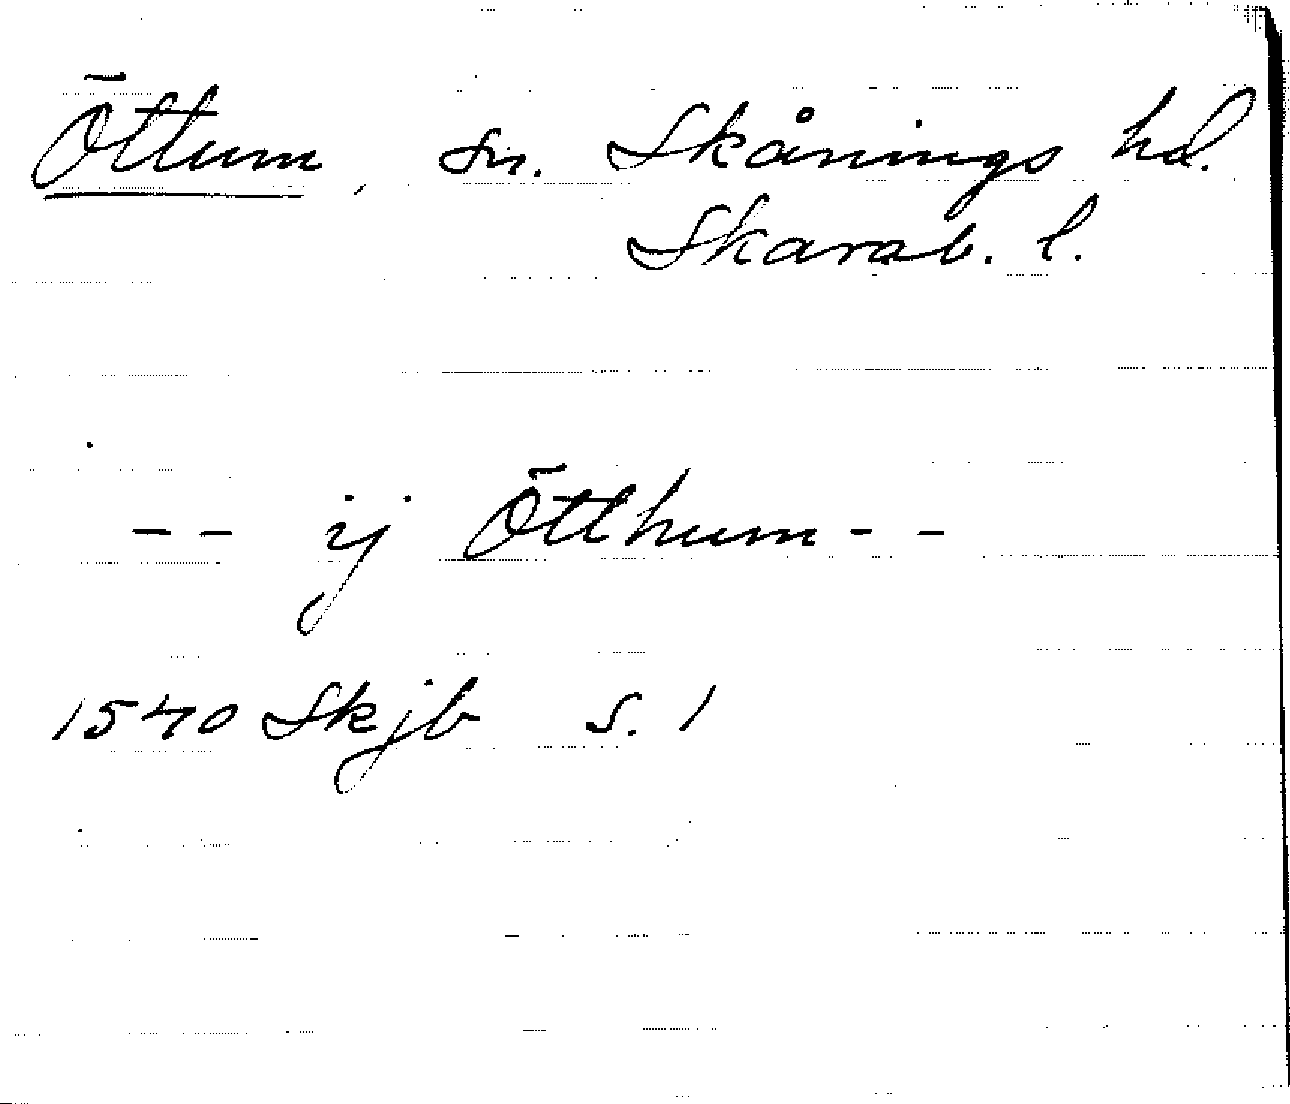 Öttum, sn. Skånings hd.
Skarab. l.
-- ij Ötthum --
1540 Skjb s. 1